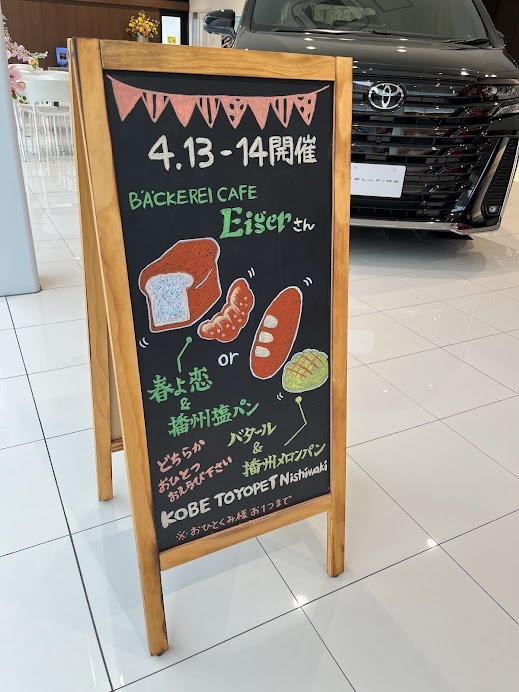 4.13-14開催
BÄCKEREI CAFE
Eigerさん
or
春よ恋
&
播州塩パン
バタール
&
播州メロンパン
どちらか
おひとつ
おえらび下さい
KOBE TOYOPET Nishiwaki
※おひとくみ様お1つまで
VELLFIRE